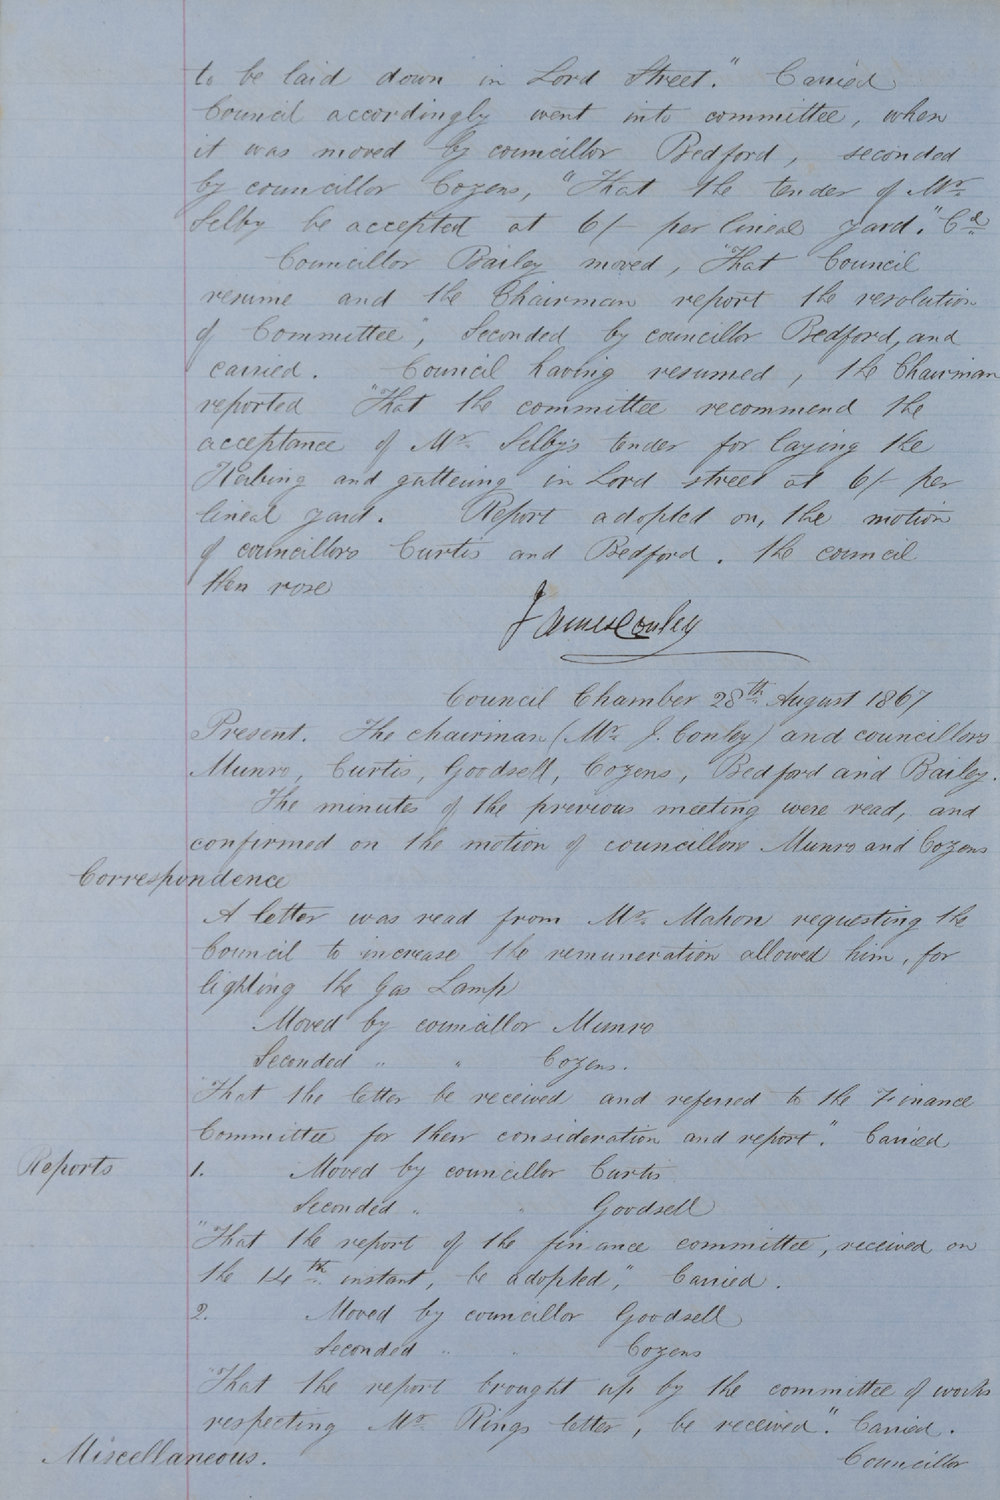 to be laid down in Lord Street." Carried
Council accordingly went into committee, when
it was moved by councillor Bedford, seconded
by councillor Cozens, "That the tender of Mr.
Selby be accepted at 6/- per lineal yard." Cd
Councillor Bailey moved, "That Council
resume and the Chairman report the resolution
of Committee", Seconded by councillor Bedford, and
carried. Council having resumed, the Chairman
reported "That the committee recommend the
acceptance of Mr. Selby's tender for laying the
Kerbing and guttering in Lord street at 6/- per
lineal yard. Report adopted on, the motion
of councillors Curtis and Bedford. the council
then rose
James Conley
Council Chamber 28th August 1867
Present. The chairman (Mr. J. Conley) and councillors
Munro, Curtis, Goodsell, Cozens, Bedford and Bailey.
The minutes of the previous meeting were read, and
confirmed on the motion of councillors Munro and Cozens
Correspondence
A letter was read from Mr. Mahon requesting the
Council to increase the remuneration allowed him, for
lighting the Gas Lamp
Moved by councillor Munro
Seconded " " Cozens.
"That the letter be received and referred to the Finance
Committee for their consideration and report". Carried
Reports 1. Moved by councillor Curtis
Seconded " " Goodsell
"That the report of the finance committee, received on
the 14th instant, be adopted", Carried.
2. Moved by councillor Goodsell
Seconded " " Cozens
"That the report brought up by the committee of works
respecting Mr. Rings letter, be received". Carried.
Miscellaneous. Councillor